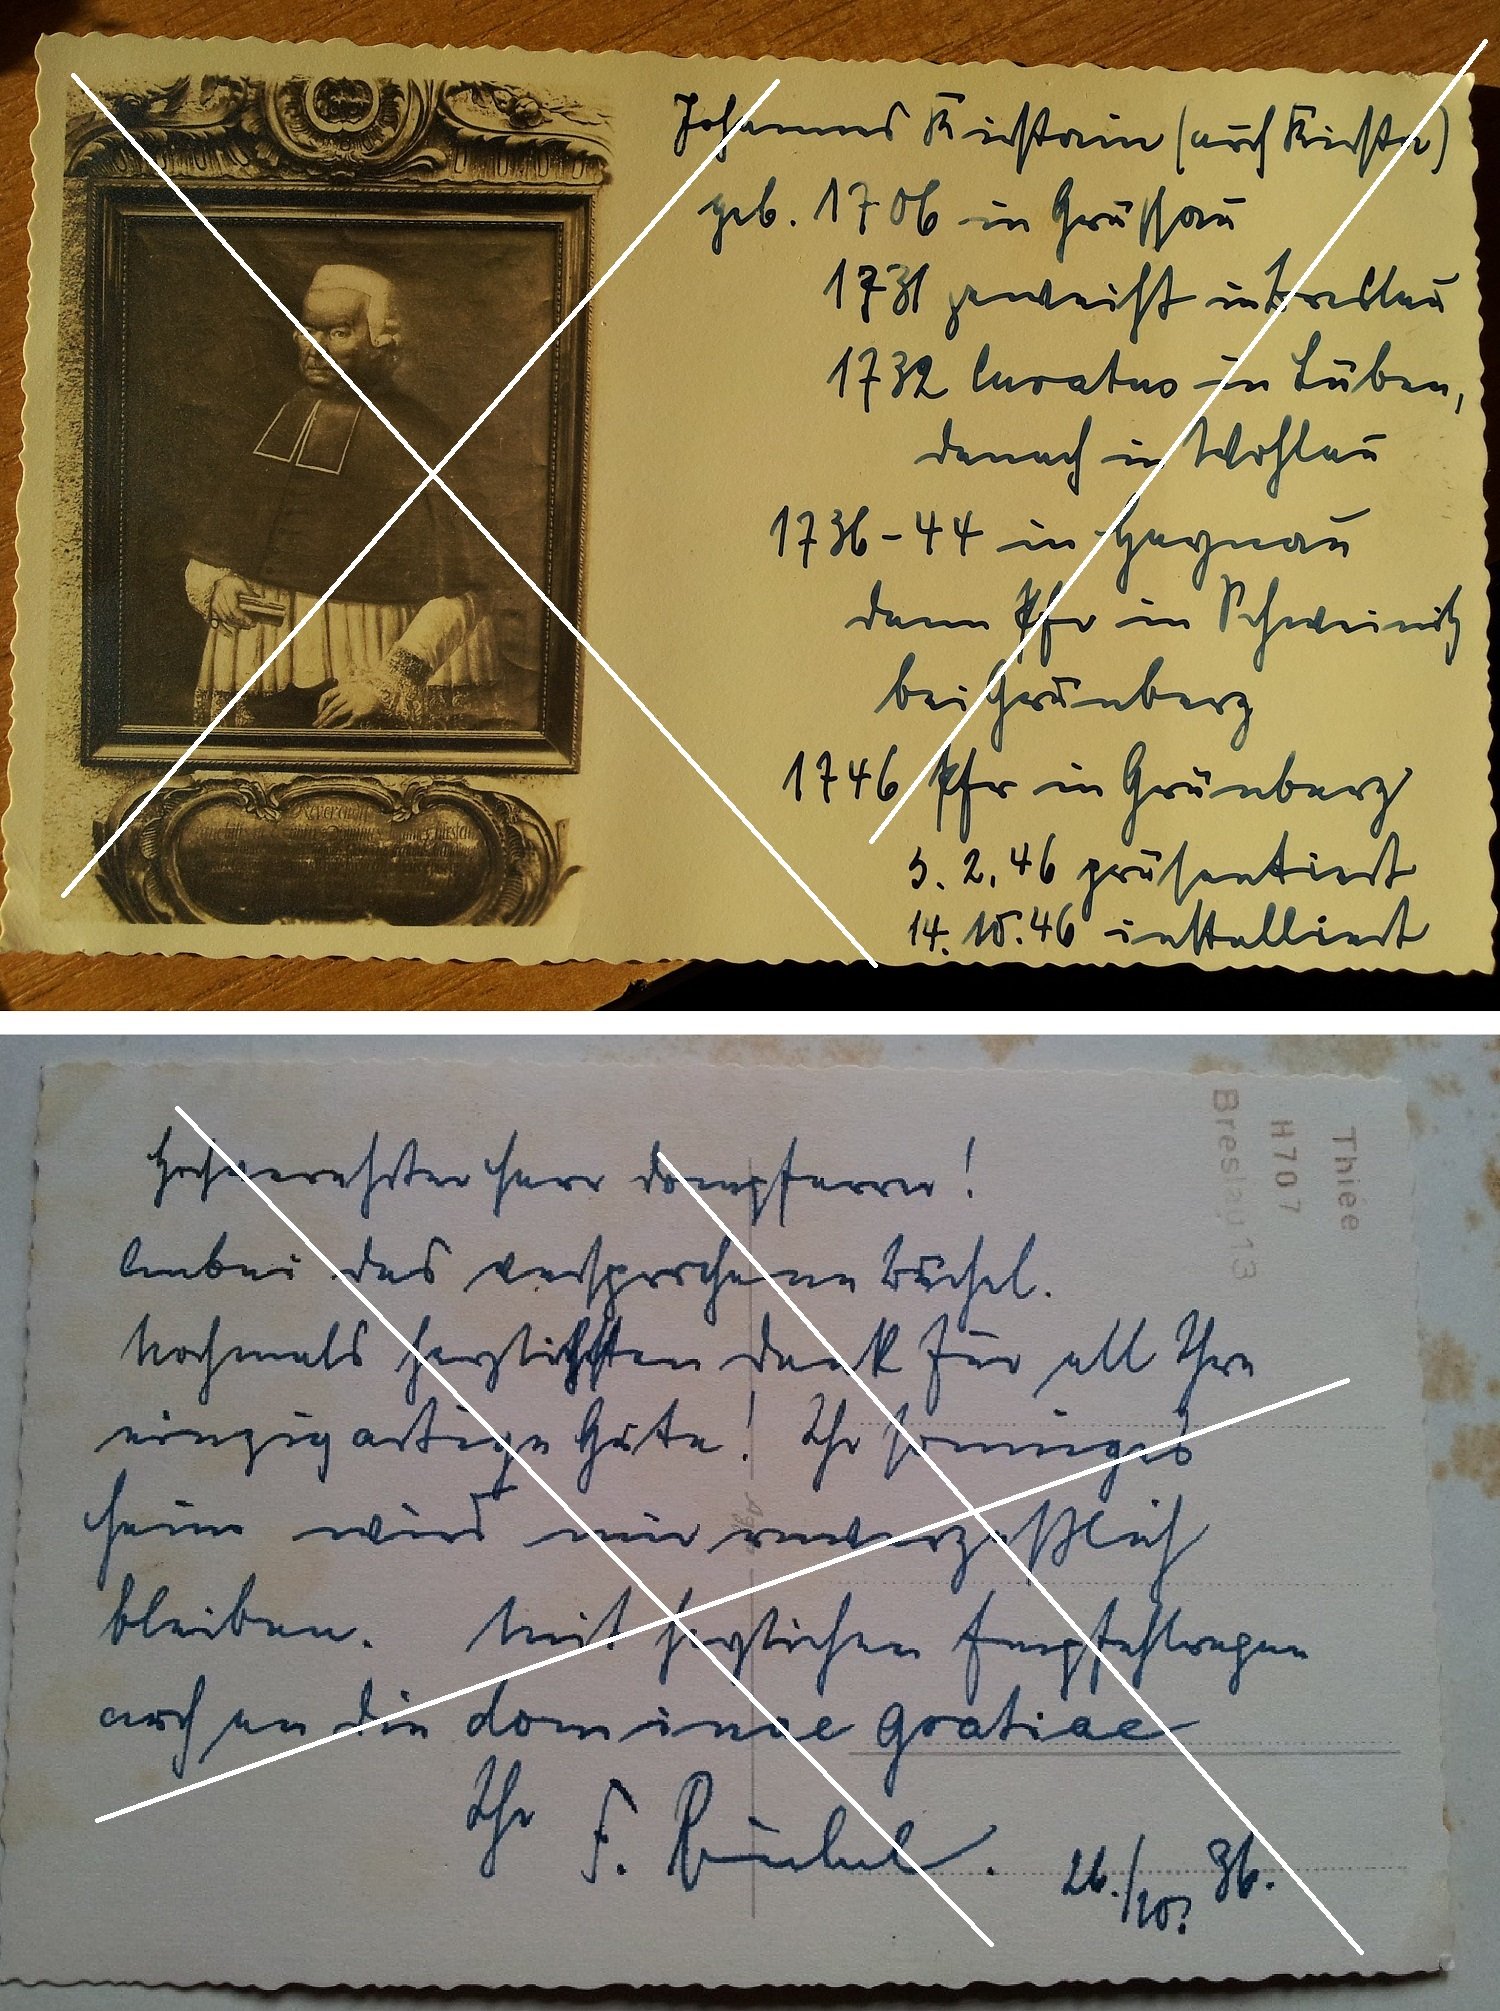 Johannes Kirstain (auch Kirste)
geb. 1706 in Grüssau
1731 geweiht in Breslau
1732 Curatus in Lüben,
danach in Wohlau
1736-44 in Haynau
dann Pfr in Schweinitz
bei Grünberg
1746 Pfr in Grünberg
5. 2. 46 präsentiert
14. 10. 46 installiert
Thiée
H707
Breslau 13
Hochverehrter Herr Dompfarrer!
Anbei das versprochene Büchel.
Nochmals herzlichsten Dank für all Ihre
einzigartige Güte! Ihr sonniges
Heim wird mir unvergeßlich
bleiben. Mit herzlichen Empfehlungen
auch an die dominae gratiae
Ihr F.
26./10. 36.